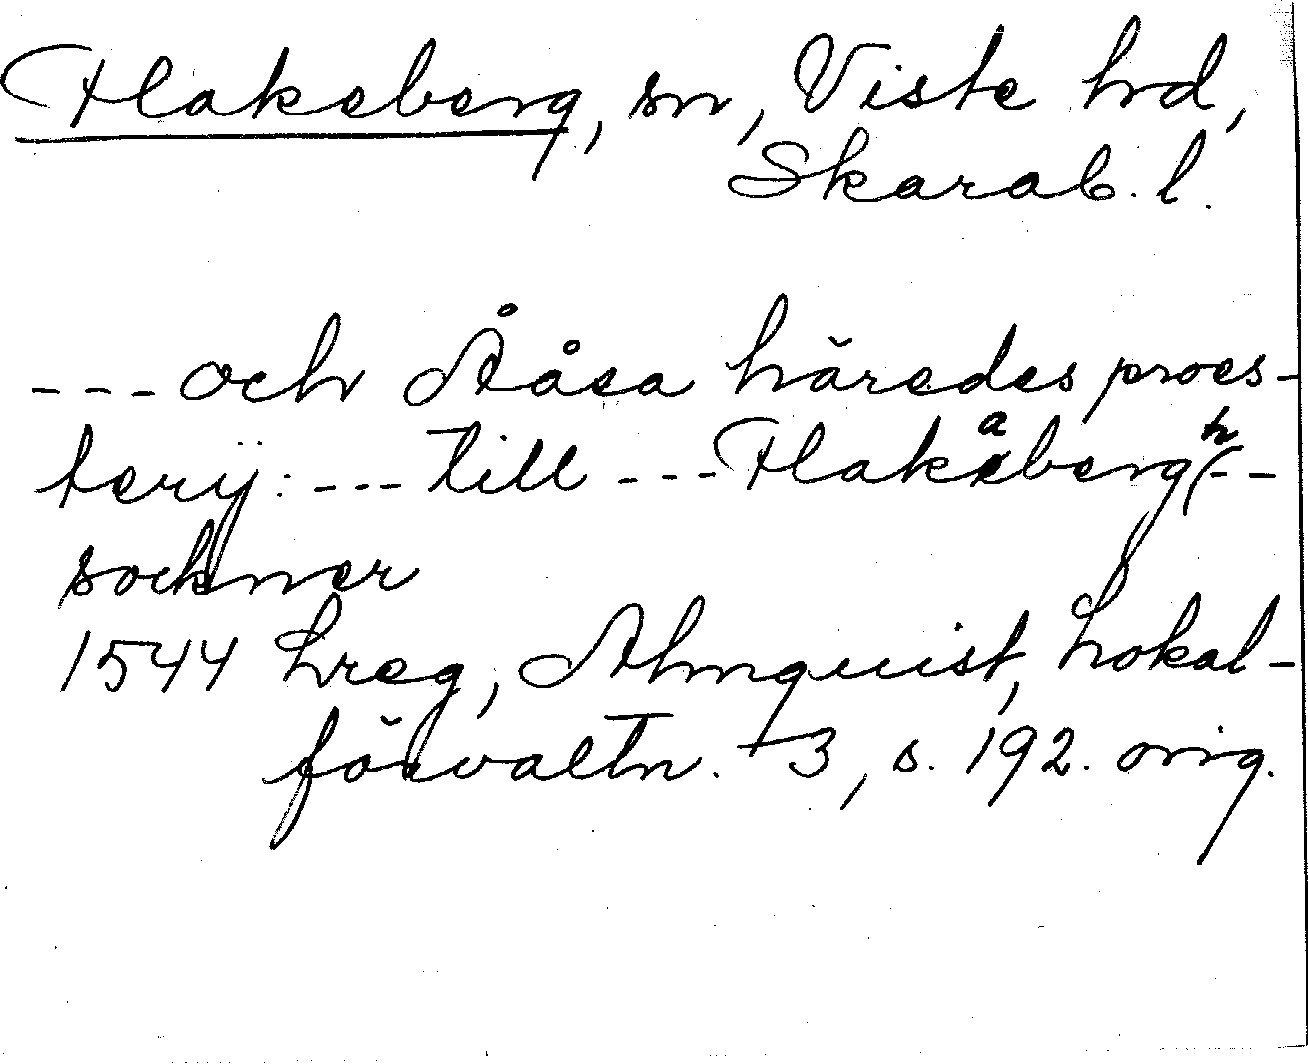 Flakeberg, sn, Viste hrd,
Skarab. l.
--- och Ååsa häredes proes-
terÿ: --- till --- Flakeberg(--
a h
sockner
1544 Lreg, Almquist, Lokal-
förvaltn. 3, s. 192. orig.